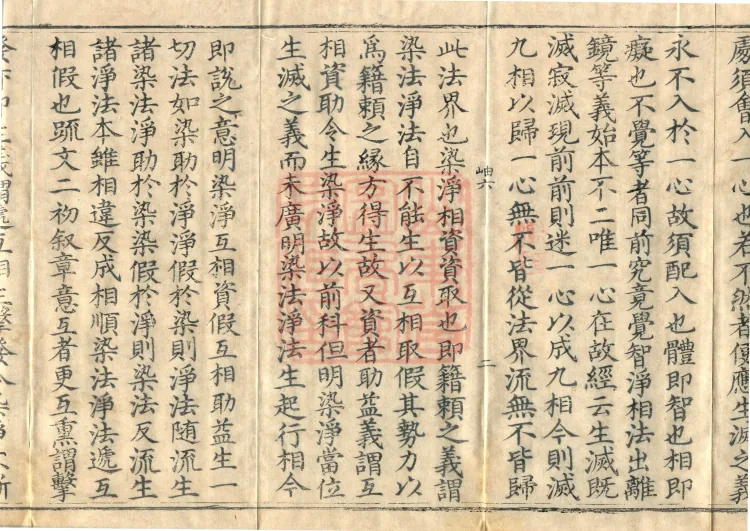 處須會入一心也若不然者便應生滅之義
永不入於一心故須配入也體即智也相即
癡也不覺等者同前究竟覺智淨相法出離
鏡等義始本不二唯一心在故經云生滅既
滅寂滅現前前則迷一心以成九相今則滅
九相以歸一心無不皆從法界流無不皆歸
岫六
二
此法界也染淨相資資取也即籍頼之義謂
染法淨法自不能生以互相取假其勢力以
爲籍頼之縁方得生故又資者助益義謂互
相資助令生染淨故以前科但明染淨當位
生滅之義而未廣明染法淨法生起行相今
即説之意明染淨互相資假互相助益生一
切法如染助於淨淨假於染則淨法随流生
諸染法淨助於染染假於淨則染法反流生
諸淨法本雖相違反成相順染法淨法遞互
相假也䟽文二初叙章意互者更互熏謂擊